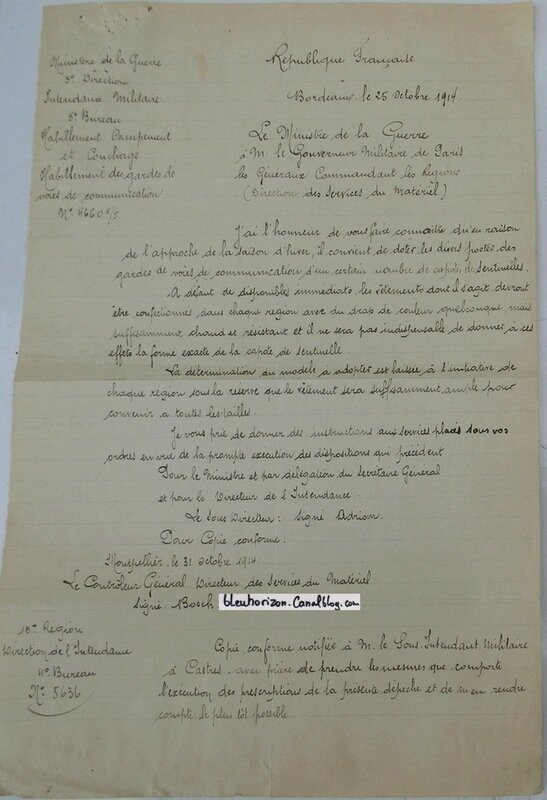 Ministère de la Guerre
5e Direction
Intendance Militaire
5e Bureau
Habillement Campement
et Couchage
Habillement des gardes de
voies de communication.
N° 4660 5/5
République Française
Bordeaux, le 25 Octobre 1914.
Le Ministre de la Guerre
à M. le Gouverneur Militaire de Paris
les Généraux Commandant les Régions
(Direction des Services du Matériel)
J'ai l'honneur de vous faire connaître qu'en raison
de l'approche de la saison d'hiver, il convient de doter les divers postes des
gardes de voies de communication, d'un certain nombre de capotes de sentinelles.
A défaut de disponibles immédiats, les vêtements dont il s'agit devront
être confectionnés dans chaque région avec du drap de couleur quelconque, mais
suffisamment chaud et résistant et il ne sera pas indispensable de donner à ces
effets la forme exacte de la capote de sentinelle.
La détermination du modèle à adopter est laissée à l'initiative de
chaque région sous la réserve que le vêtement sera suffisamment ample pour
convenir à toutes les tailles.
Je vous prie de donner des instructions aux services placés sous vos
ordres en vue de la prompte exécution des dispositions qui précèdent
Pour le Ministre et par délégation du Secrétaire Général
et pour le Directeur de l'Intendance.
Le Sous Directeur: Signé Adrian.
Pour Copie conforme:
Montpellier, le 31 Octobre 1914.
Le Contrôleur Général Directeur des Services du Matériel
Signé: Bosch
bleuhorizon.canalblog.com
Région
Direction de l'Intendance
4e Bureau
N° 5636
Copie conforme notifiée à M. le Sous-Intendant Militaire
à Castres, avec prière de prendre les mesures que comporte
l'exécution des prescriptions de la présente dépêche et de m'en rendre
compte le plus tôt possible